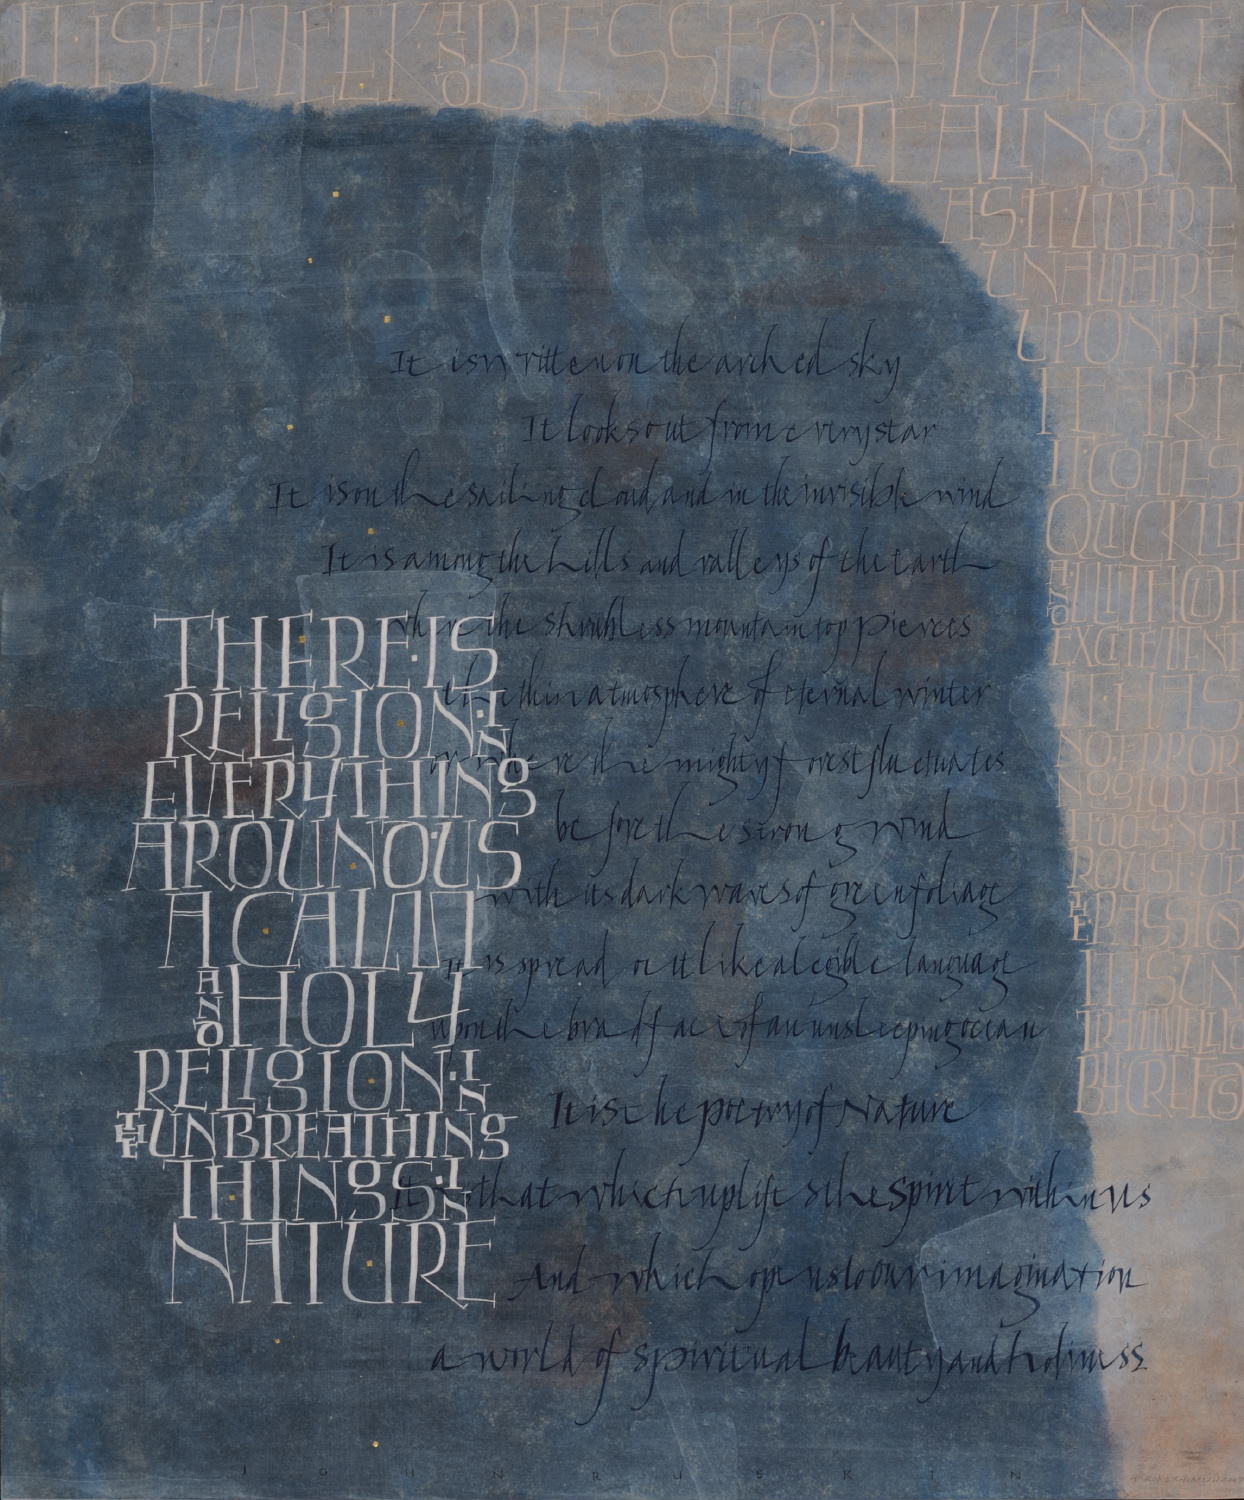 IT·IS·A·MEEK AND BLESSED INFLUENCE
STEALING IN
AS·IT WERE
UNAWARE
UPON THE
HEART
IT·COMES
QUICKLY
AND·WITHOUT
EXCITEMENT
IT·HAS
NO·TERROR
NO·GLOOM
IT·DOES·NOT
ROUSE·UP
THE PASSIONS
IT·IS UN
TRAMMELLED
BY CREEDS
It is written on the arched sky
It looks out from every star
It is on the sailing cloud and in the invisible wind
It is among the hills and valleys of the earth
where the shrubless mountain top pierces
the thin atmosphere of eternal winter
or where the mighty forest fluctuates
before the strong wind
with its dark waves of green foliage
It is spread out like a legible language
upon the broad face of an unsleeping ocean
It is the poetry of Nature
It is that which uplifts the spirit within us
And which opens to our imagination
a world of spiritual beauty and holiness
THERE·IS
RELIGION·IN
EVERYTHING
AROUND·US
A CALM
AND HOLY
RELIGION·IN
THE UNBREATHING
THINGS·IN
NATURE
JOHN RUSKIN